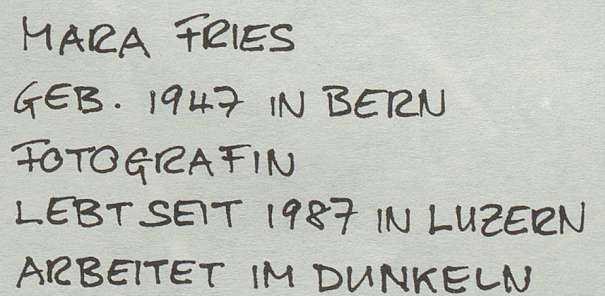 MARA FRIES
GEB. 1947 IN BERN
FOTOGRAFIN
LEBT SEIT 1987 IN LUZERN
ARBEITET IM DUNKELN